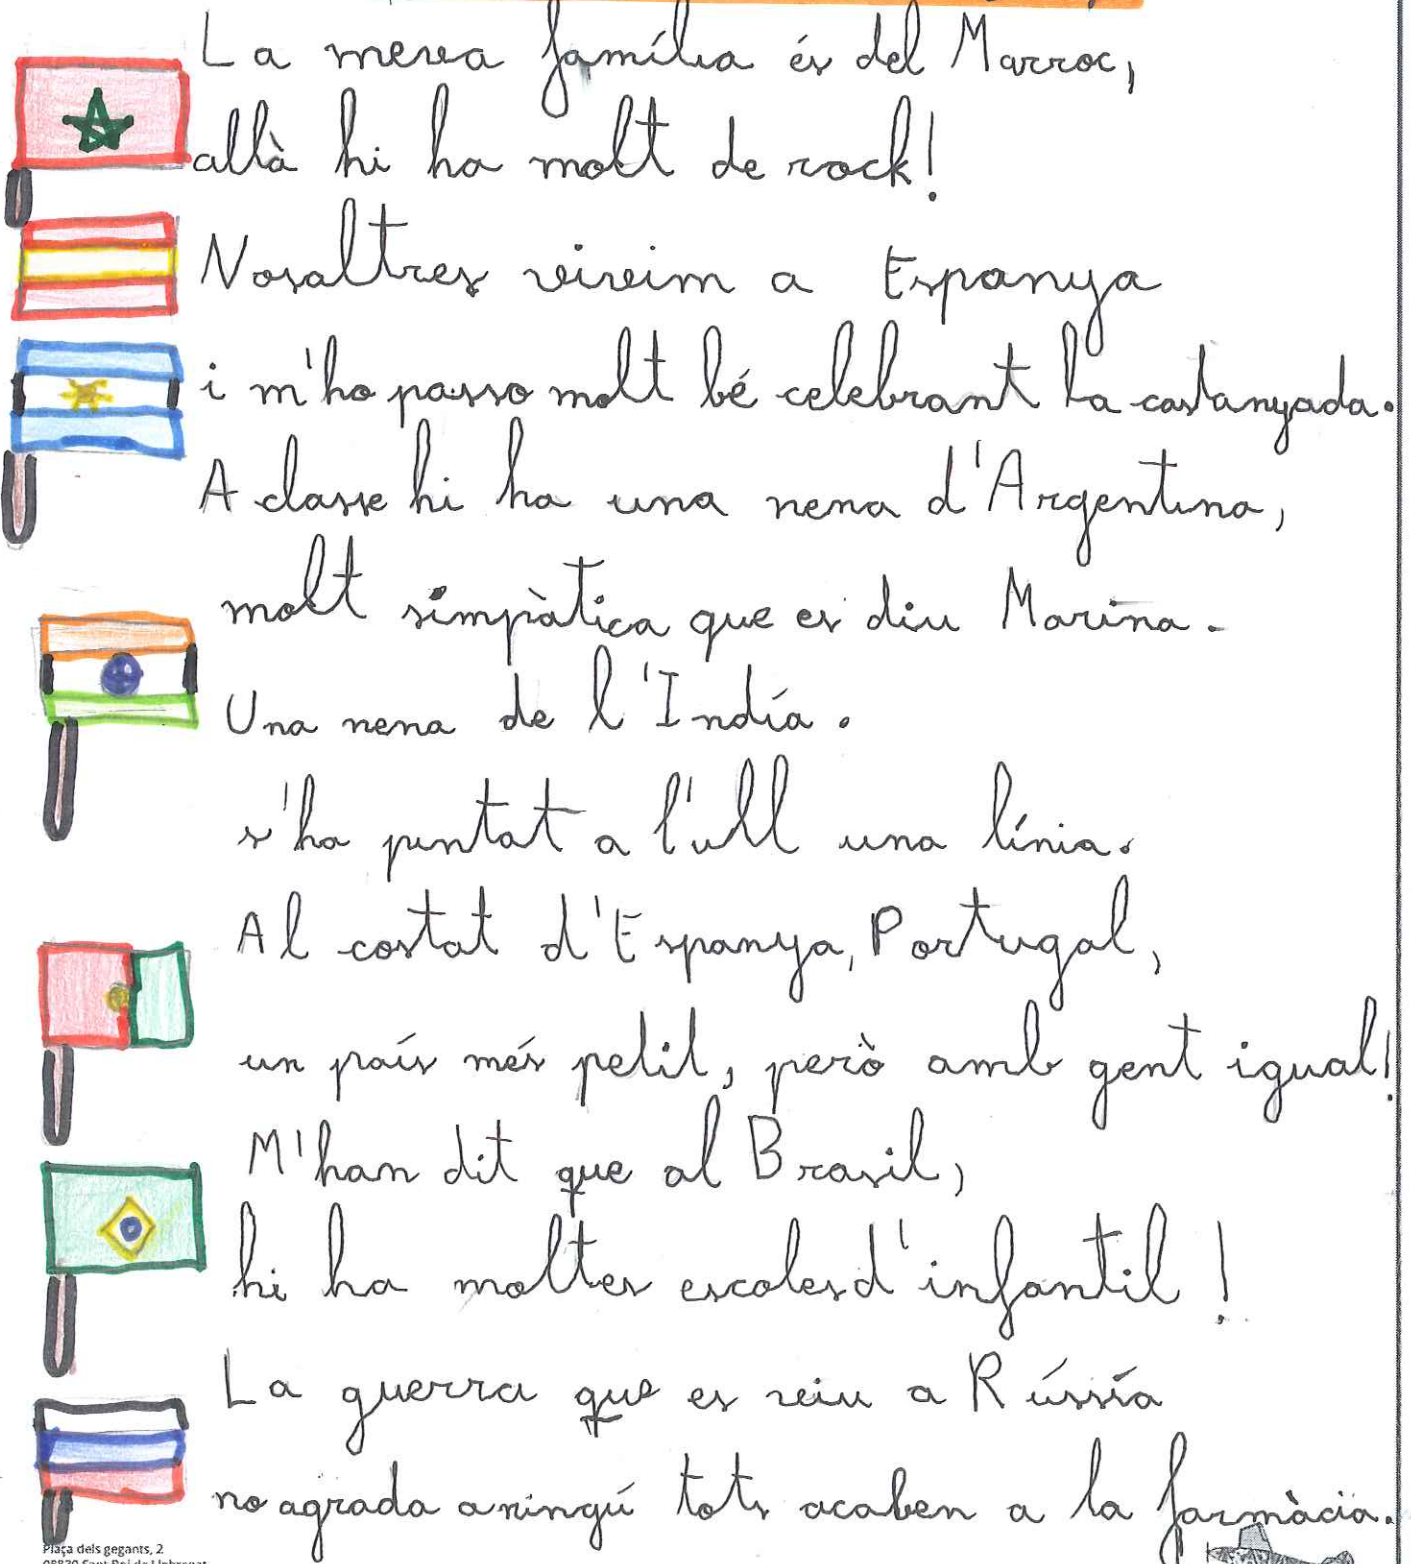 La meva família és del Marroc,
allà hi ha molt de rock!
Nosaltres vivim a Espanya
i m'ho passo molt bé celebrant la castanyada.
A classe hi ha una nena d'Argentina,
molt simpàtica que es diu Marina.
Una nena de l'Indía.
s'ha puntat a l'ull una línia.
Al costat d'Espanya, Portugal,
un país més petit, però amb gent igual!
M'han dit que al Brasil,
hi ha moltes escoles d'infantil!
La guerra que es veiu a Rússía
no agrada a ningú tots acaben a la farmàcia.
Plaça dels gegants, 2